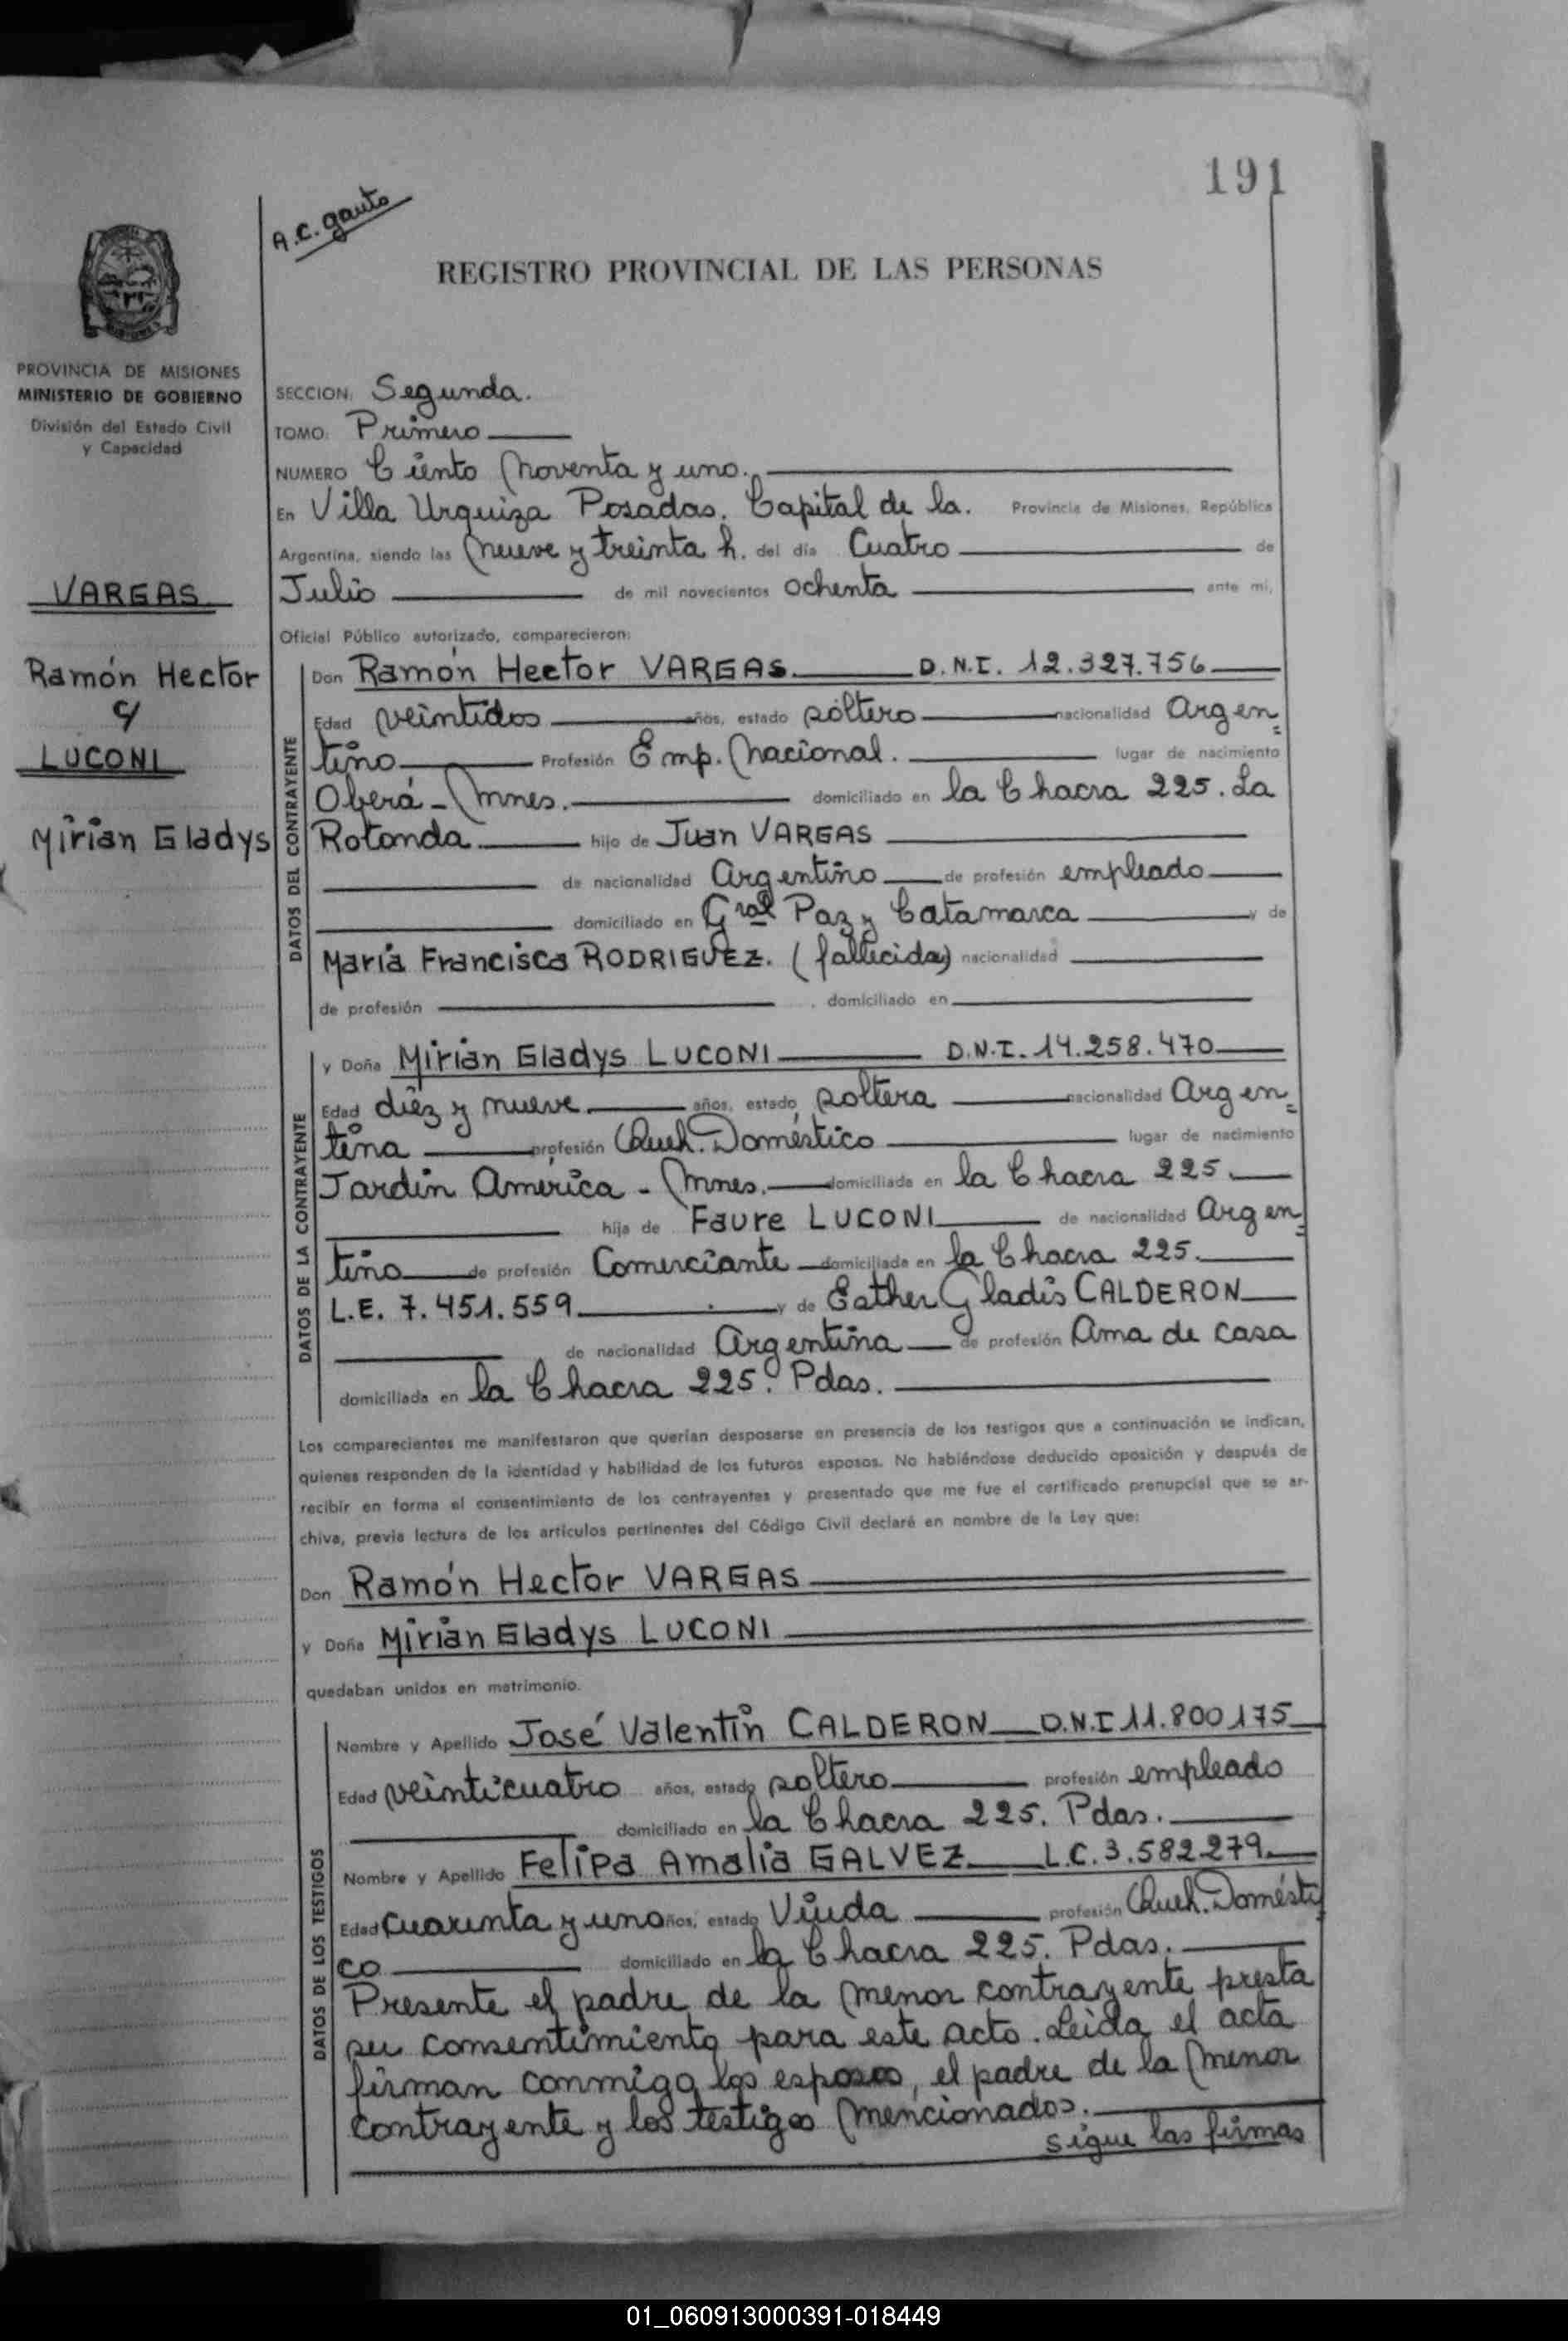 191
A.C. Gauto
REGISTRO PROVINCIAL DE LAS PERSONAS
PROVINCIA DE MISIONES
MINISTERIO DE GOBIERNO
División del Estado Civil
y Capacidad
VARGAS
Ramón Hector
c/
LUCONI
Mirian Gladys
SECCION: Segunda.
TOMO: Primero
NUMERO Ciento Noventa y uno.
En Villa Urquiza Posadas. Capital de la. Provincia de Misiones, República
Argentina, siendo las Nueve y treinta h. del día Cuatro de
Julio de mil novecientos ochenta ante mi,
Oficial Público autorizado, comparecieron:
DATOS DEL CONTRAYENTE
Don Ramón Hector VARGAS. D.N.I. 12.327.756
Edad veintidos años, estado soltero nacionalidad Argen=
tino Profesión Emp. Nacional. lugar de nacimiento
Oberá - Mnes. domiciliado en la Chacra 225. La
Rotonda hijo de Juan VARGAS
de nacionalidad Argentino de profesión empleado
domiciliado en Gral Paz y Catamarca y de
María Francisca RODRIGUEZ. (fallecida) nacionalidad
de profesión domiciliado en
DATOS DE LA CONTRAYENTE
y Doña Mirian Gladys LUCONI D.N.I. 14.258.470
Edad diez y nueve años, estado soltera nacionalidad Argen=
tina profesión Queh. Doméstico lugar de nacimiento
Jardin América - Mnes. domiciliada en la Chacra 225.
hija de Faure LUCONI de nacionalidad Argen=
tino de profesión Comerciante domiciliado en la Chacra 225.
L.E. 7.451.559 y de Esther Gladis CALDERON
de nacionalidad Argentina de profesión Ama de casa
domiciliada en la Chacra 225. Pdas.
Los comparecientes me manifestaron que querían desposarse en presencia de los testigos que a continuación se indican,
quienes responden de la identidad y habilidad de los futuros esposos. No habiéndose deducido oposición y después de
recibir en forma el consentimiento de los contrayentes y presentado que me fue el certificado prenupcial que se ar-
chiva, previa lectura de los artículos pertinentes del Código Civil declaré en nombre de la Ley que:
Don Ramón Hector VARGAS
y Doña Mirian Gladys LUCONI
quedaban unidos en matrimonio.
DATOS DE LOS TESTIGOS
Nombre y Apellido José Valentín CALDERON D.N.I 11.800.175
Edad veinticuatro años, estado soltero profesión empleado
domiciliado en la Chacra 225. Pdas.
Nombre y Apellido Felipa Amalia GALVEZ L.C. 3.582.279
Edad cuarenta y uno años, estado Viuda profesión Queh. Domésti
co domiciliado en la Chacra 225. Pdas.
Presente el padre de la menor contrayente presta
su consentimiento para este acto. Leída el acta
firman conmigo los esposos, el padre de la menor
contrayente y los testigos mencionados.
sigue las firmas
01_060913000391-018449